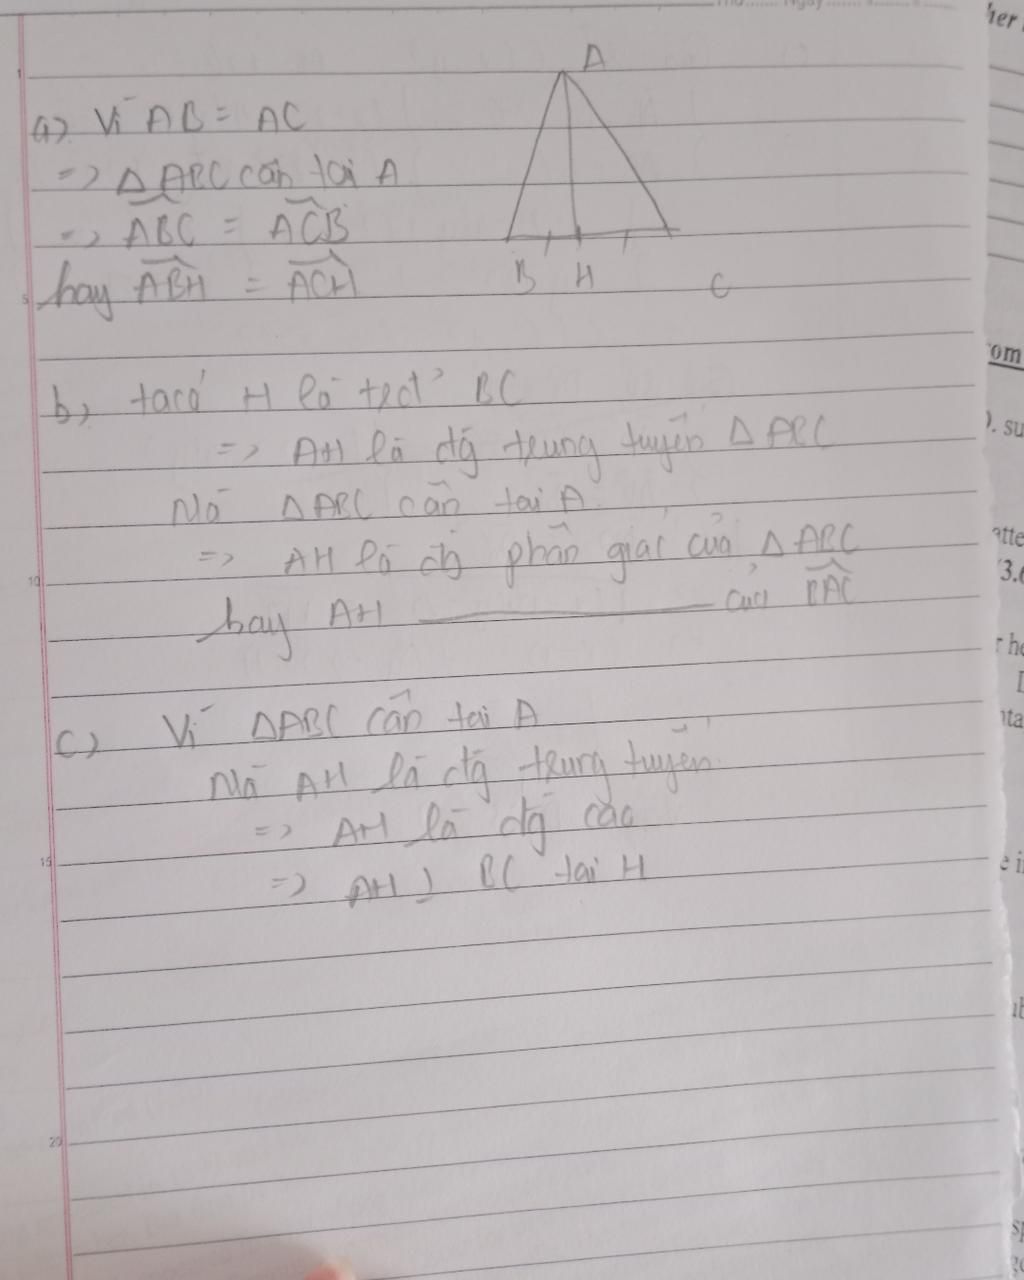 A
a) Vì AB = AC
=> Δ ABC cân tại A
=> ABC = ACB
hay ABH = ACH
B H C
b, ta có H là tđ BC
=> AH là đg trung tuyến Δ ABC
Mà Δ ABC cân tại A
=> AH là đg phân giác của Δ ABC
hay AH ______ của BAC
c) Vì ΔABC cân tại A
Mà AH là đg trung tuyến
=> AH là đg cao
=> AH ⊥ BC tại H
1
5
10
15
20
her
om
su
atte
3.
r he
nta
e i